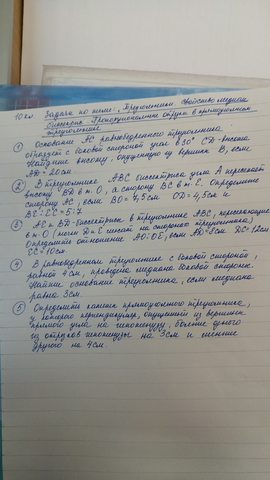 10 кл. Задачи по теме: „Треугольники. Свойство медиан
биссектрис. Пропорциональные отрезки в прямоугольном
треугольнике
① Основание AC равнобедренного треугольника
образует с боковой стороной угол в 30° CD - высота
Найдите высоту, опущенную из вершины B, если
AD = 20см
② В треугольнике ABC биссектриса угла A пересекает
высоту BD в т. O, а сторону BC в т. E. Определите
сторону AC, если BO = 7,5см OD = 4,5см и
BE : EC = 5:7
③ AE и BD - биссектрисы в треугольнике ABC, пересекающиеся
в т. O (точки D и E лежат на сторонах треугольника)
Определите отношение AO:OE, если AD = 8см DC = 12см
EC = 10см
④ В равнобедренном треугольнике с боковой стороной,
равной 4см, проведена медиана боковой стороны.
Найти основание треугольника, если медиана
равна 3см.
⑤ Определите катеты прямоугольного треугольника,
у которого перпендикуляр, опущенный из вершины
прямого угла на гипотенузу, больше одного
из отрезков гипотенузы на 3см и меньше
другого на 4см.